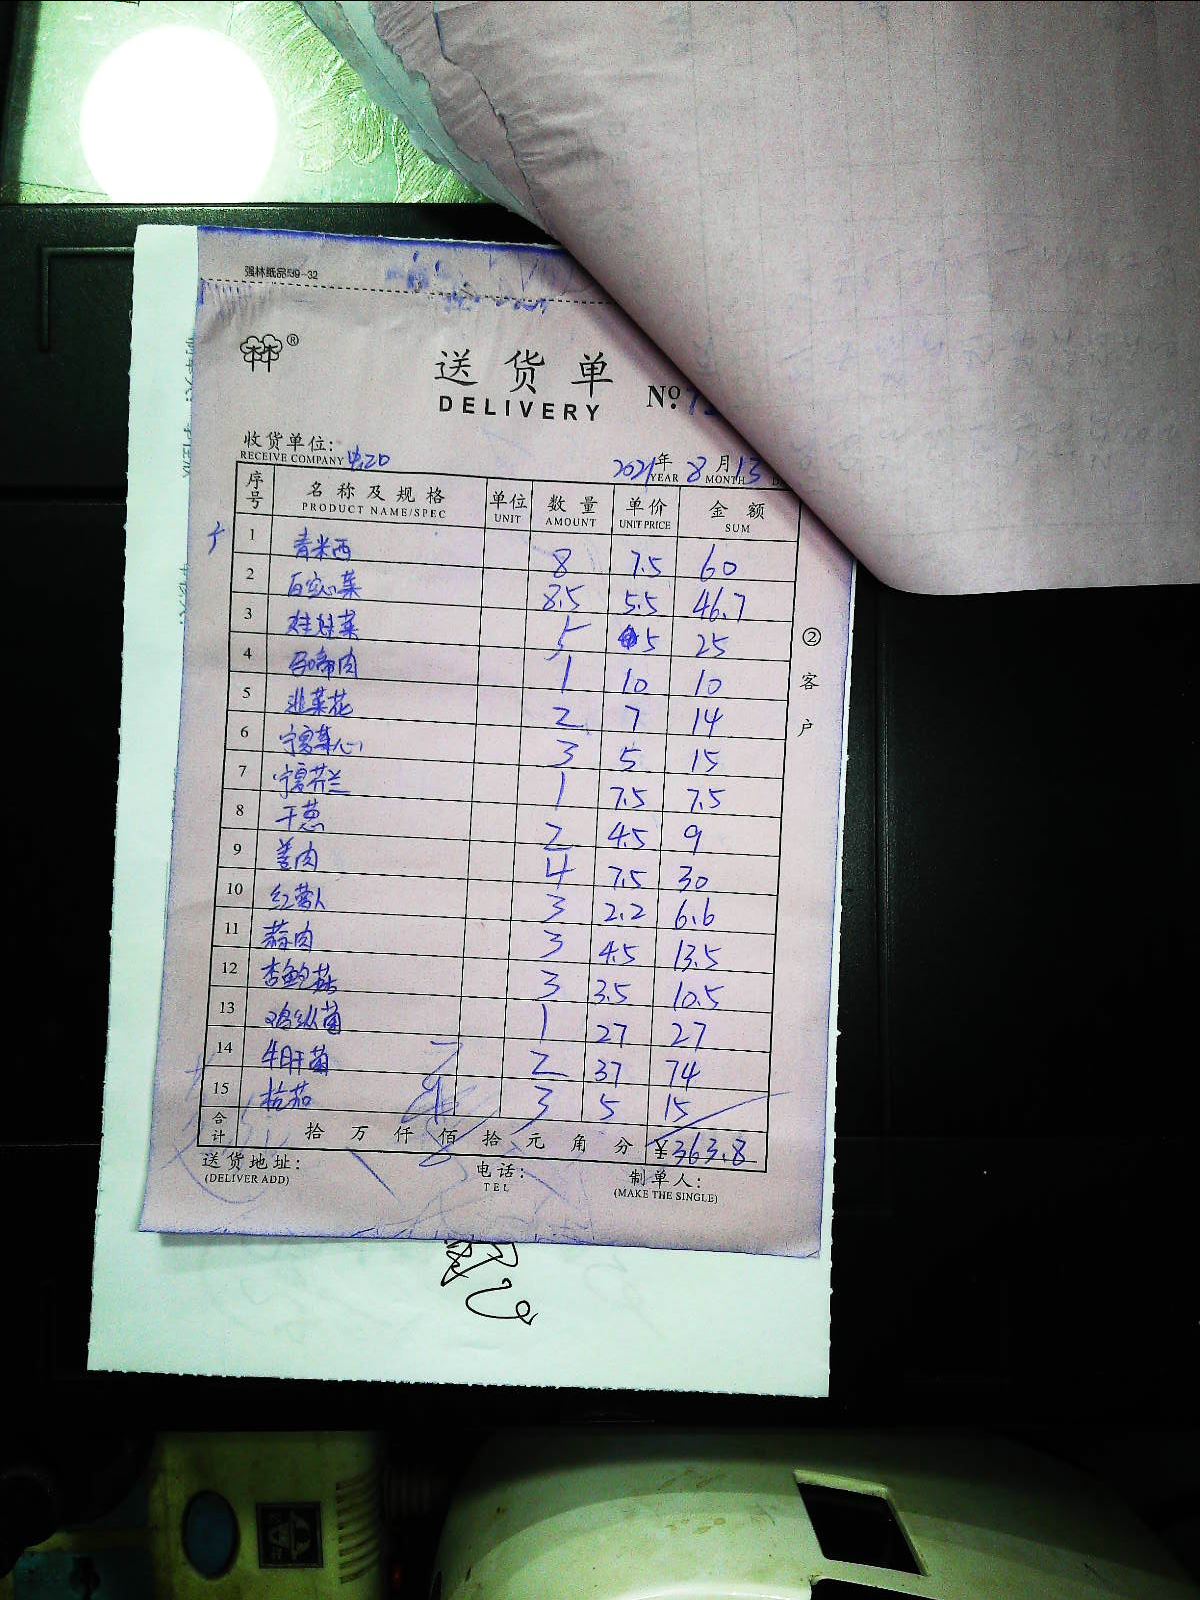 强林纸品539-32
林®
送货单
DELIVERY
No.
收货单位:
RECEIVE COMPANY
2021年 8月13
YEAR MONTH
序号 名称及规格 单位 数量 单价 金额
PRODUCT NAME/SPEC UNIT AMOUNT UNIT PRICE SUM
1 青米西 8 7.5 60
2 8.5 5.5 46.7
3 娃娃菜 5 5 25
4 肉 1 10 10
5 韭菜花 2 7 14
6 宁夏菜心 3 5 15
7 宁夏芥兰 1 7.5 7.5
8 干葱 2 4.5 9
9 姜肉 4 7.5 30
10 红萝人 3 2.2 6.6
11 蒜肉 3 4.5 13.5
12 杏鲍菇 3 3.5 10.5
13 鸡纵菌 1 27 27
14 牛肝菌 2 37 74
15 桔茄 3 5 15
合计 拾万仟佰拾元角分 ¥363.8
送货地址: 电话: 制单人:
(DELIVER ADD) TEL (MAKE THE SINGLE)
②客户